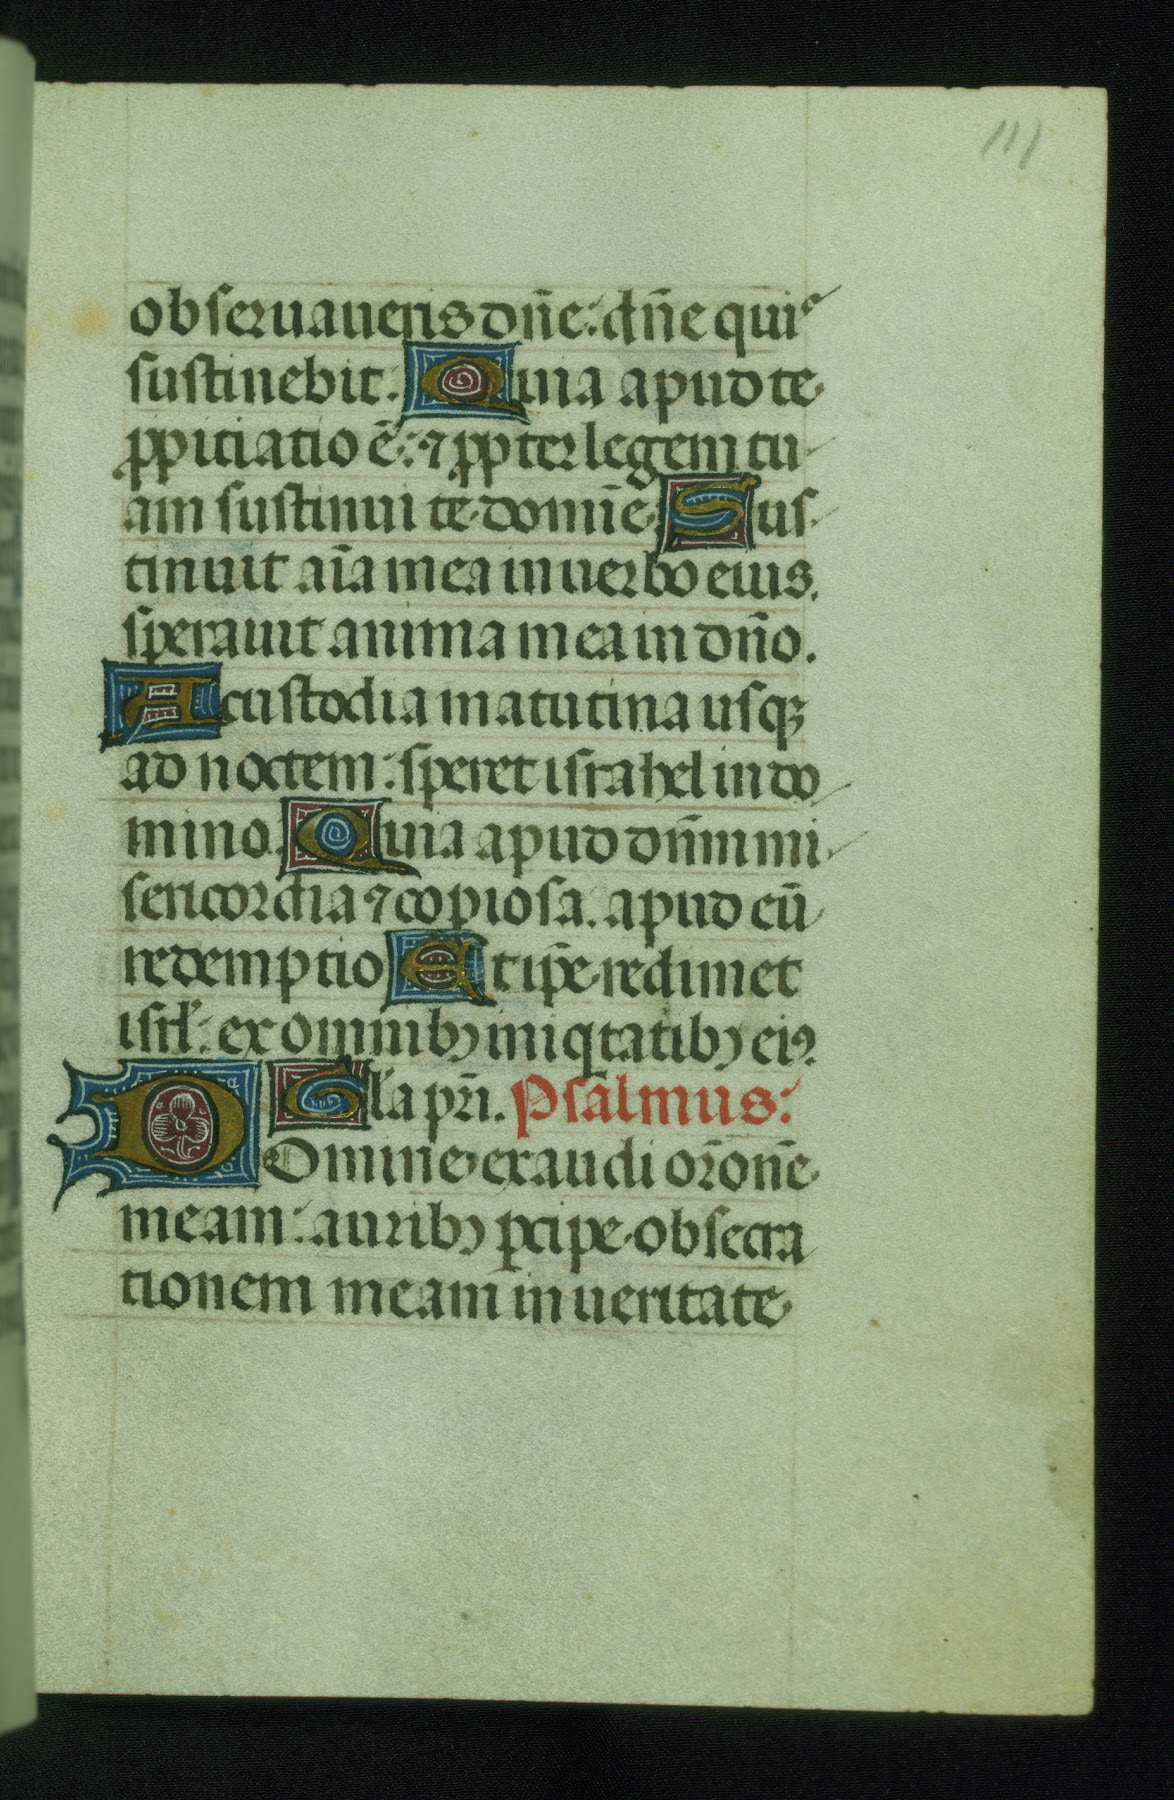 111
obseruaueris dn̄e: dn̄e quis
sustinebit. Quia apud te
ꝓpitiatio ē: ⁊ ꝓpter legem tu
am sustinui te domīe. Sus
tinuit aīa mea in uerbo eius.
sperauit anima mea in dn̄o.
A custodia matutina usqꝫ
ad noctem: speret israhel in do
mino. Quia apud dn̄m mi
sericordia ⁊ copiosa. apud eū
redemptio Et ip̄e redimet
isrl̄: ex omnibꝫ iniqtatibꝫ eiꝰ.
Gl̄a pr̄i. Psalmus:
Domine exaudi or̄onē
meam: auribꝫ ꝑcipe obsecra
tionem meam in ueritate